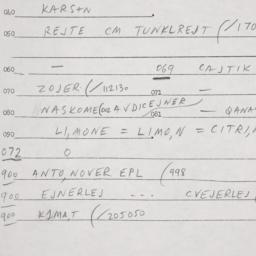 040 KARSAN
050 REJTE CM TUNKLREJT (/170
060 — 069 CAJTIK
070 ZOJER (/112130 071 —
080 NASKOME (002 AVDICEJNER 081 — QANA
090 LI, MONE = LIMO, N = CITRI,
072 0
900 ANTO, NOVER EPL (998
900 EJNERLEJ ... CVEJERLEJ
900 KLIMAT (/205050